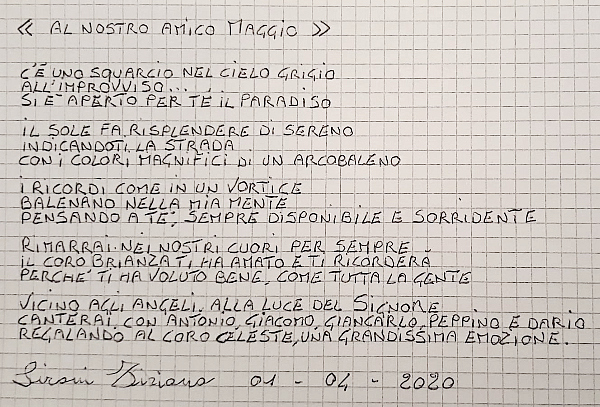 « AL NOSTRO AMICO MAGGIO »
C'È UNO SQUARCIO NEL CIELO GRIGIO
ALL'IMPROVVISO...
SI È APERTO PER TE IL PARADISO
IL SOLE FA RISPLENDERE DI SERENO
INDICANDOTI LA STRADA
CON I COLORI MAGNIFICI DI UN ARCOBALENO
I RICORDI COME IN UN VORTICE
BALENANO NELLA MIA MENTE
PENSANDO A TE; SEMPRE DISPONIBILE E SORRIDENTE
RIMARRAI NEI NOSTRI CUORI PER SEMPRE
IL CORO BRIANZA TI HA AMATO E TI RICORDERÀ
PERCHÉ TI HA VOLUTO BENE, COME TUTTA LA GENTE
VICINO AGLI ANGELI, ALLA LUCE DEL SIGNORE
CANTERAI CON ANTONIO, GIACOMO, GIANCARLO, PEPPINO E DARIO
REGALANDO AL CORO CELESTE, UNA GRANDISSIMA EMOZIONE.
Sironi Tiziano 01 - 04 - 2020